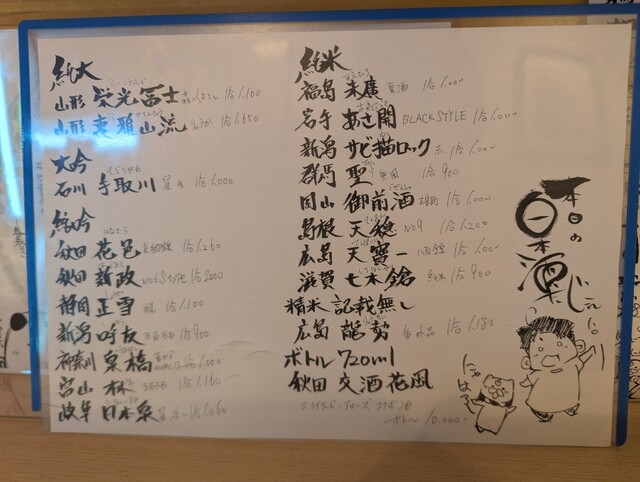 純大
山形 栄光冨士 1合 1,100
山形 東雅山流 1合 1,650
大吟
石川 手取川 1合 1,000
純吟
秋田 花邑 美郷錦 1合 1,260
秋田 新政 No6 S type 1合 2000
静岡 正雪 1合 1,100
新潟 吟友 五百万石 1合 900
神奈川 泉橋 1合 1,000
富山 林 五百万石 1合 1,160
岐阜 日本泉 1合 1,060
純米
福島 末廣 1合 1,000
岩手 あさ開 BLACK STYLE 1合 1,000
新潟 サビ猫ロック 1合 1,000
群馬 聖 1合 900
岡山 御前酒 雄町 1合 1,000
島根 天穏 No9 1合 1,200
広島 天寶一 八反錦 1合 1,000
滋賀 七本鎗 純米 1合 900
精米 記載無し
広島 龍勢 番外品 1合 1,180
ボトル 720ml
秋田 交酒 花風
ボトル 10,000
本日の
日本酒